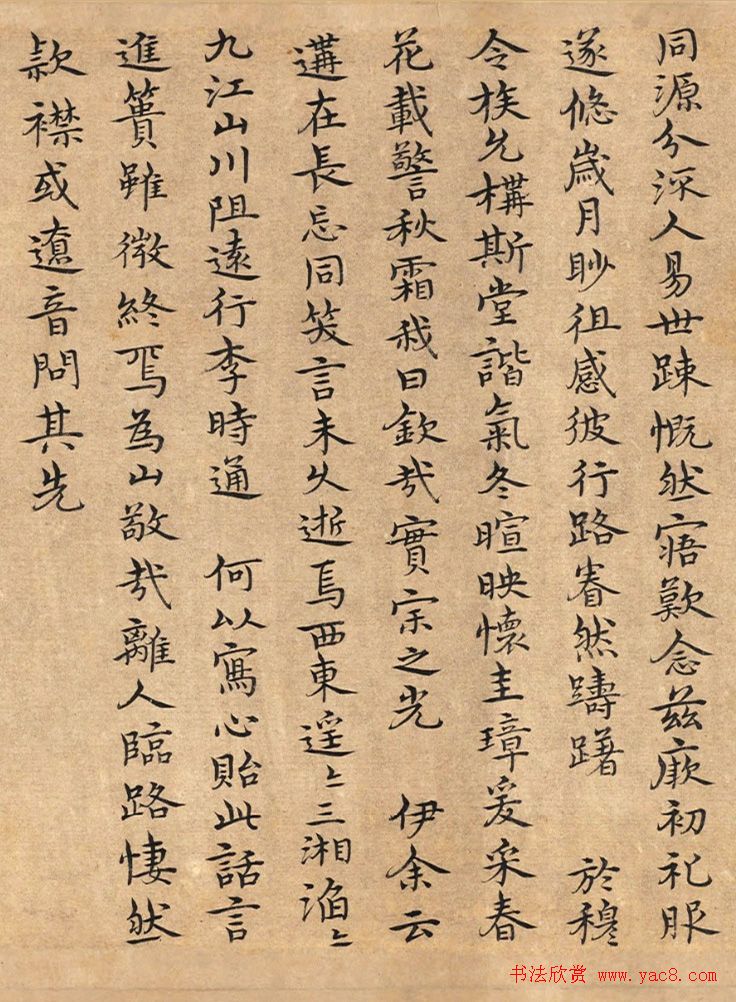 同源分泒人易世踈慨然寤歎念兹厥初礼服
遂悠歲月眇徂感彼行路眷然躊躇 於穆
令族允構斯堂諧氣冬暄映懷圭璋爰采春
花載警秋霜我曰欽哉實宗之光 伊余云
遘在長忘同笑言未久逝焉西東遥〻三湘滔〻
九江山川阻遠行李時通 何以寫心貽此話言
進簣雖微終焉為山敬哉離人臨路悽然
款襟或遼音問其先
书法欣赏 www.yac8.com